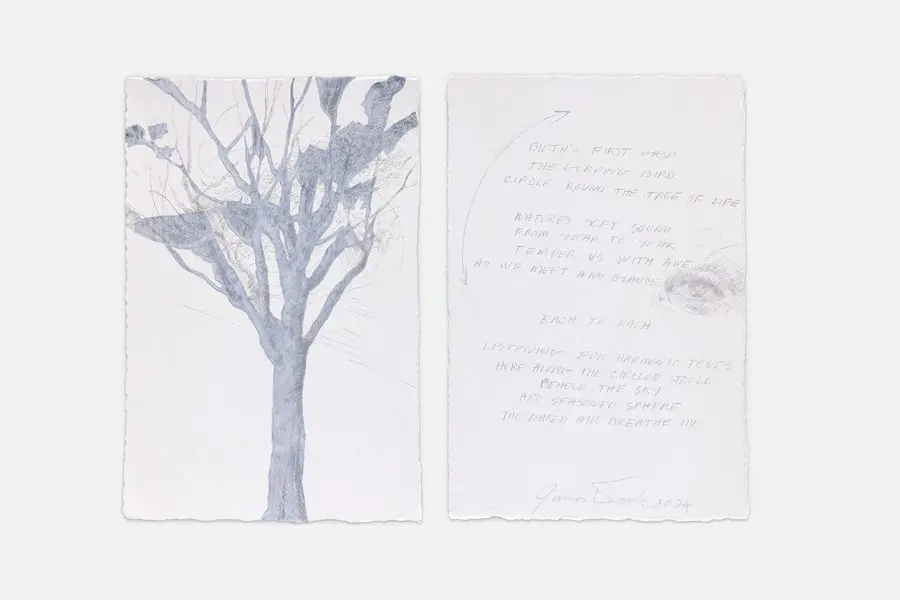 BIRTH'S FIRST
THE BIRD
CIRCLE ROUND THE TREE OF LIFE
NATURES SOFT SOUND
FROM YEAR TO YEAR
TEMPER US WITH AWE
AS WE MEET AND GLANCE
EACH TO EACH
LISTENING FOR HARMONIC TONES
HERE ALONG THE CIRCLED STROLL
BEHOLD THE SKY
AND SEASONED SPHERE
THE NAKED AIR BREATHE IN
James 2024